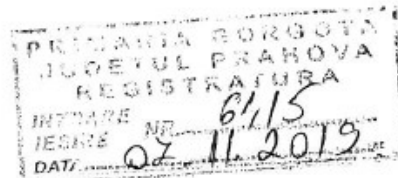 PRIMARIA GORGOTA
JUDETUL PRAHOVA
REGISTRATURA
INTRARE
IESIRE NR. 6115
DATA 07 11. 2019